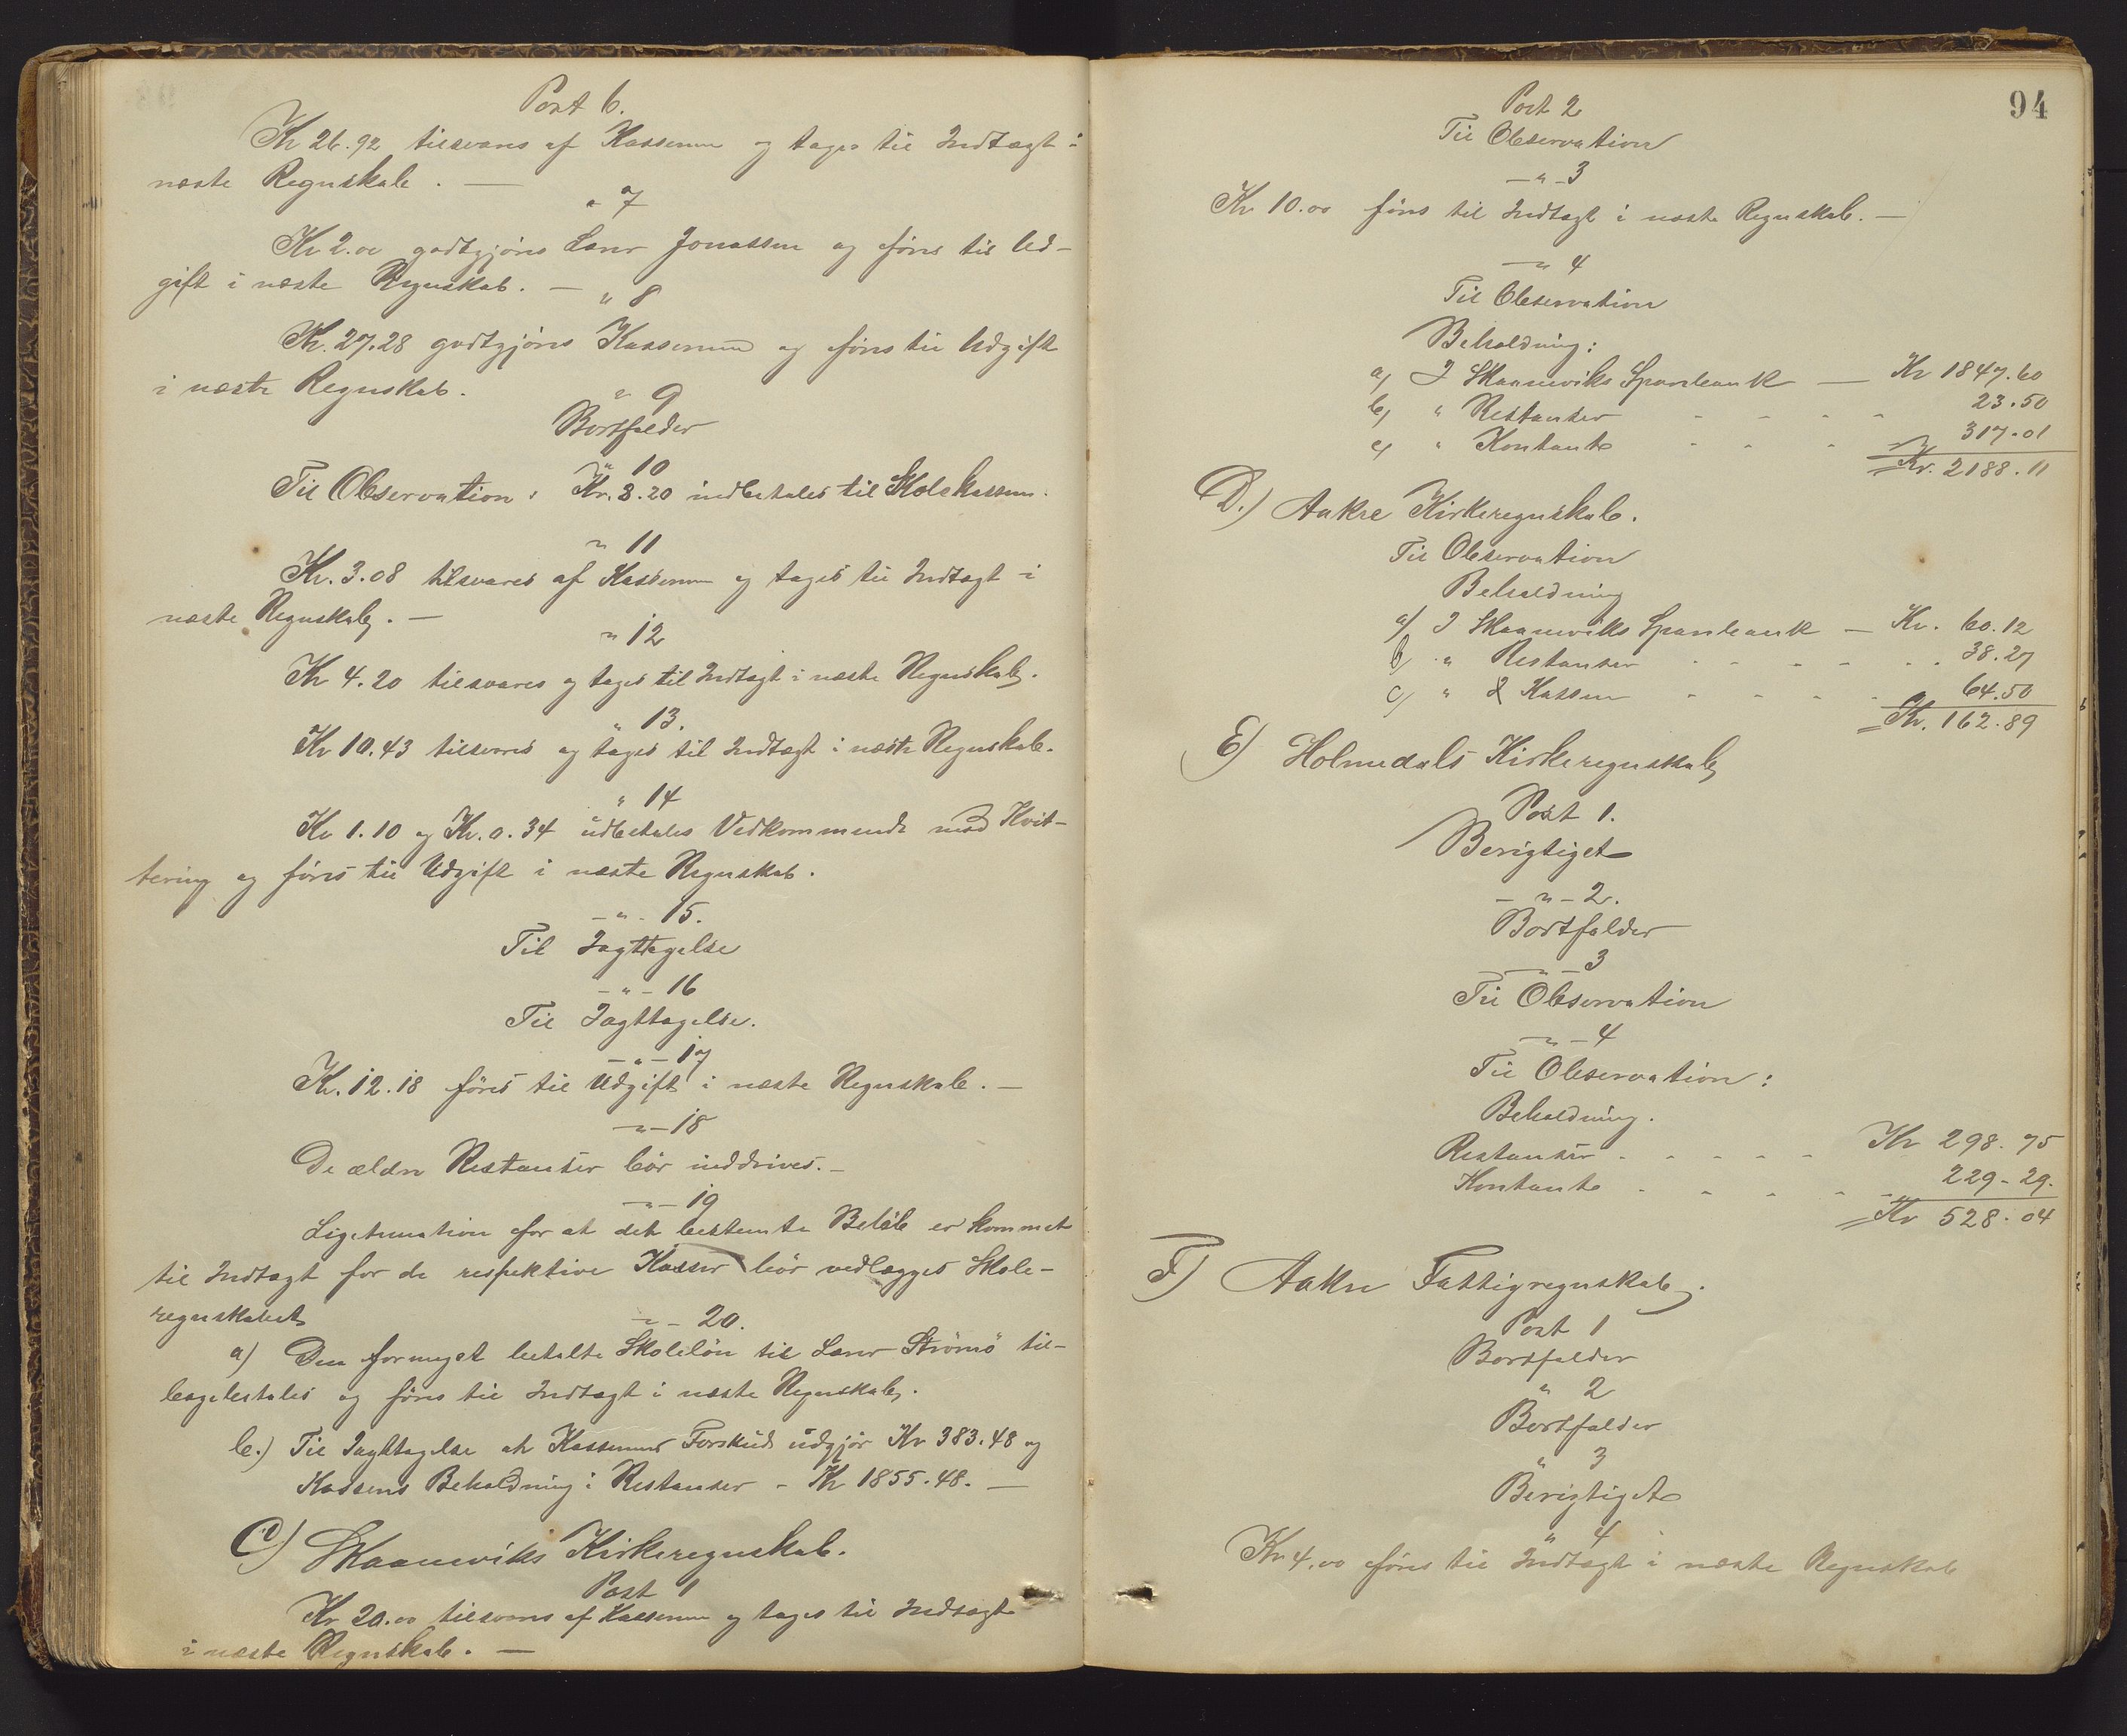 Post 6.
Kr 26.92 tilsvares af Kassereren og tages til Indtægt i
næste Regnskab. —
" 7
Kr 2.00 godtgjöres Lærer Jonassen og föres til Ud-
gift i næste Regnskab. —
" 8
Kr. 27.28 godtgjöres Kassereren og föres til Udgift
i næste Regnskab.
" 9
Bortfalder
" 10
Til Observation: Kr. 3.20 indbetales til Skolekassen.
" 11
Kr. 3.08 tilsvares af Kassereren og tages til Indtægt i
næste Regnskab. —
" 12
Kr 4.20 tilsvares og tages til Indtægt i næste Regnskab.
" 13.
Kr 10.43 tilsvares og tages til Indtægt i næste Regnskab.
" 14
Kr 1.10 og Kr. 0.34 udbetales Vedkommende mod Kvit-
tering og föres til Udgift i næste Regnskab.
- " - 15.
Til Iagttagelse
- " - 16
Til Iagttagelse.
- " - 17
Kr. 12.18 föres til Udgift i næste Regnskab. —
- " - 18
De ældre Restanser bör inddrives. —
- " - 19
Ligetimation for at det bestemte Belöb er kommet
til Indtægt for de respektive Kasser bör vedlægges Skole-
regnskabet
- " - 20.
a) Den formeget betalte Skolelön til Lærer Strömö til-
bagebetales og föres til Indtægt i næste Regnskab.
b.) Til Iagttagelse at Kassererens Forskud udgjör Kr 383.48 og
Kassens Beholdning i Restanser - Kr 1855.48. —
C) Skaaneviks Kirkeregnskab.
Post 1
Kr 20.00 tilsvares af Kassereren og tages til Indtægt
i næste Regnskab. —
94
Post 2
Til Observation
— " - 3
Kr 10.00 föres til Indtægt i næste Regnskab. —
— " 4
Til Observation
Beholdning:
a) I Skaaneviks Sparebank — Kr 1847.60
b) " Restanser - - - - 23.50
c) " Kontante - - - - 317.01
Kr. 2188.11
D.) Aakre Kirkeregnskab.
Til Observation
Beholdning
a) I Skaaneviks Sparebank — Kr. 60.12
b) " Restanser - - - - - 38.27
c) " Kassen - - - - 64.50
Kr. 162.89
E) Holmedals Kirkeregnskab
Post 1.
Berigtiget
- " - 2.
Bortfalder
— " - 3
Til Observation
— " - 4
Til Observation:
Beholdning.
Restanser - - - - - Kr 298.75
Kontante - - - - - 229.29.
Kr 528.04
F) Aakre Fattigregnskab.
Post 1
Bortfalder
" 2
Bortfalder
" 3
Berigtiget
" 4
Kr 4.00 föres til Indtægt i næste Regnskab